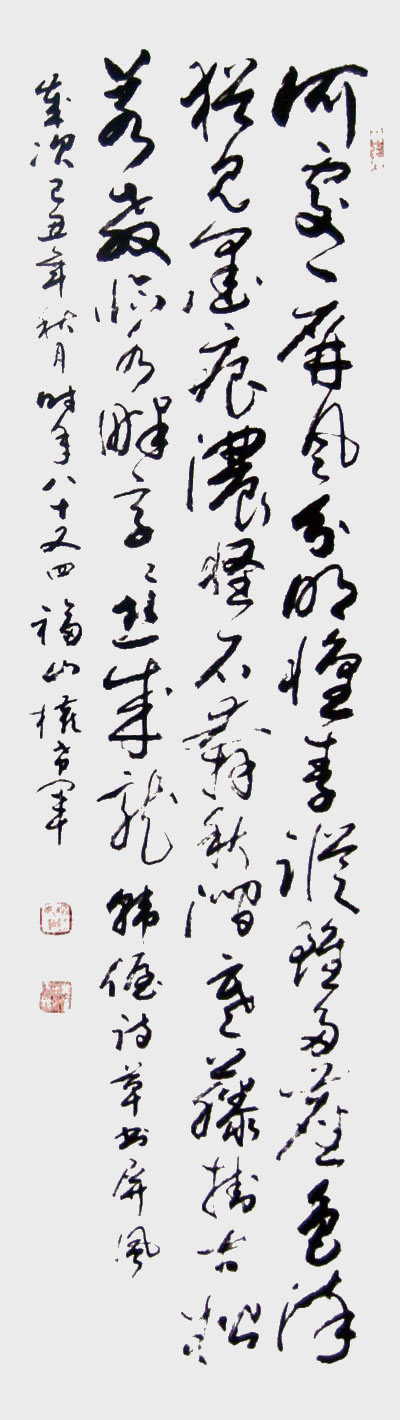 何處一屏風分明懷素蹤雖多塵色染
猶見墨痕濃怪石奔秋澗寒藤掛古松
若教臨水畔字々恐成龍 韓偓詩草書屏風
歲次己丑年秋月時年八十又四福山權